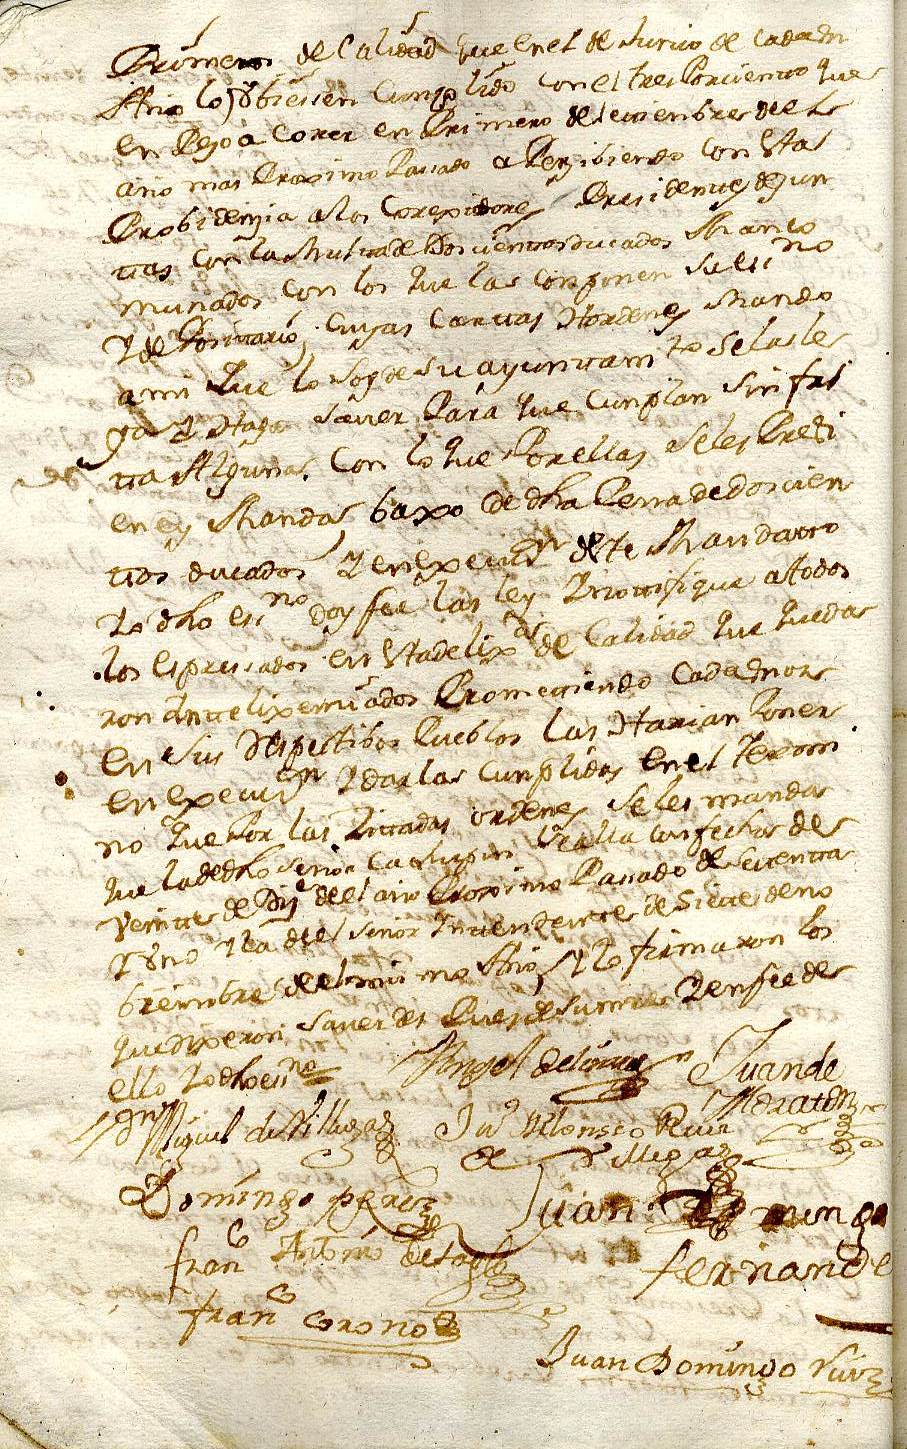 Primero de Calidad que en el de Junio de Cada un
Año lo hubiesen Cumplido con el tres Porciento que
enpezo a Correr en Primero de Setiembre de el
año mas Proximo Pasado aPerzibiendo con Esta
Probidenzia a los Corexidores Presidentes de Jun
tas Con la Multa de Doscientos ducados Manco
munados con los que las componen su esno
y de Positario, Cuyas Cartas Hordenes Mando
a mi que lo soy de su ayuntamto se las le
ga y Haga saver Para que Cunplan sin fal
ta Alguna. Con lo que Por ellas se les Predi
eney Mandas, baxo de dha Pena de doscien
tos ducados, y en execuon de te Mandatto
Yo dho esno doy fee las ley y notifique a todos
los espresados en Esta delixa de Calidad que queda
ron Prometiendo Cada uno
en sus Respectibos Pueblos las Harian Poner
en execuon y darlas Cunplidas en el Termi
no que Por las Zittadas ordenes se les manda
que la de dho señor con fecha de
veinte de Die de el año Proximo Pasado de setenta
y uno y la del señor Yntendente de Siete de no
biembre de el mismo Año, y lo firmaron los
que dixeron saver des Pues de y en fee de
ello Yo dho esno
Angel de
Juan de
Moratt
Miguel de Villegas
Jn Alonso Ruiz
de Villegas
Domingo perez
Juan Domingo
fernande
franco Antonio de
franco Corono
Juan Domingo Ruiz